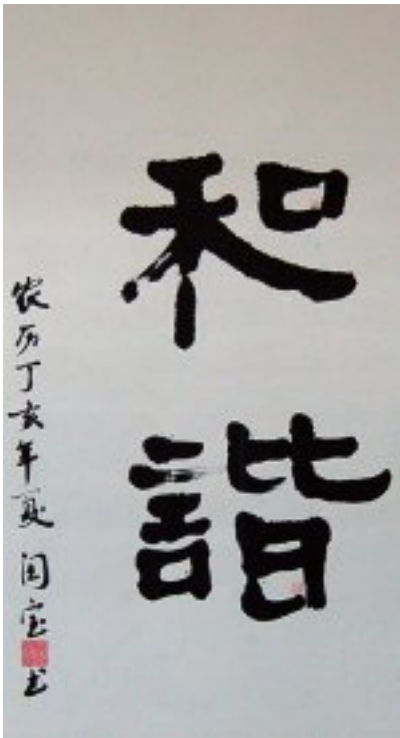 和諧
农历丁亥年夏国宝书